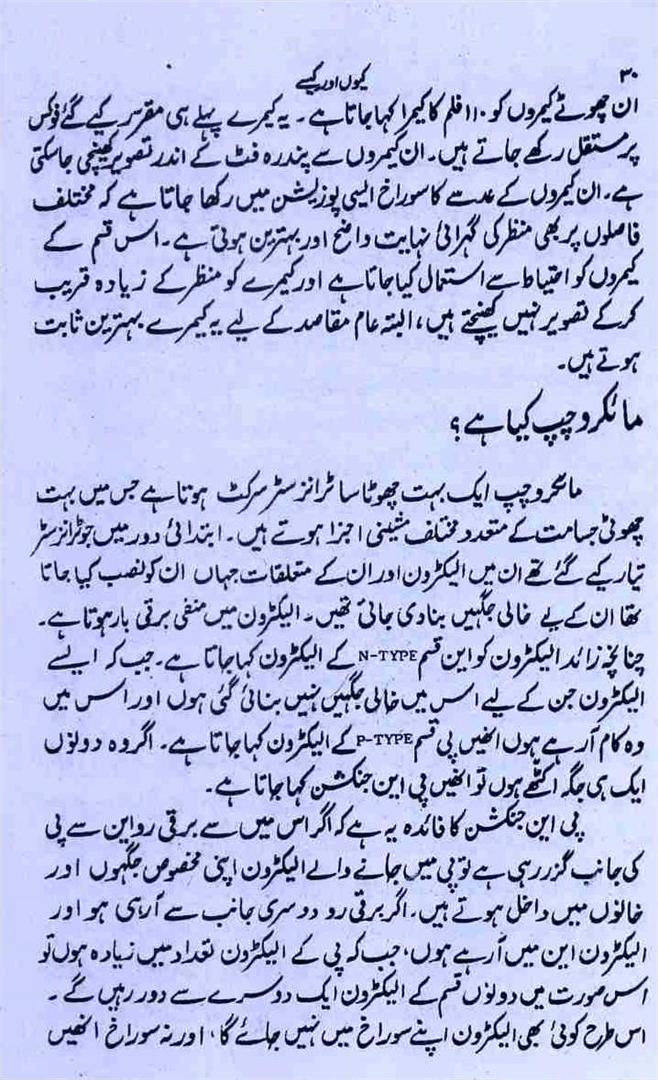 ۳۰
کیوں اور کیسے
ان چھوٹے کیمروں کو ۱۱۰ فلم کا کیمرا کہا جاتا ہے۔ یہ کیمرے پہلے ہی مقرر کیے گئے فوکس
پر مستقل رکھے جاتے ہیں۔ ان کیمروں سے پندرہ فٹ کے اندر تصویر کھینچی جا سکتی
ہے۔ ان کیمروں کے عدسے کا سوراخ ایسی پوزیشن میں رکھا جاتا ہے کہ مختلف
فاصلوں پر بھی منظر کی گہرائی نہایت واضح اور بہترین ہوتی ہے۔ اس قسم کے
کیمروں کو احتیاط سے استعمال کیا جاتا ہے اور کیمرے کو منظر کے زیادہ قریب
کر کے تصویر نہیں کھینچتے ہیں، البتہ عام مقاصد کے لیے یہ کیمرے بہترین ثابت
ہوتے ہیں۔
مائکرو چپ کیا ہے؟
مائکرو چپ ایک بہت چھوٹا سا ٹرانزسٹر سرکٹ ہوتا ہے جس میں بہت
چھوٹی جسامت کے متعدد مختلف مشینی اجزا ہوتے ہیں۔ ابتدائی دور میں جو ٹرانزسٹر
تیار کیے گئے تھے ان میں الیکٹرون اور ان کے متعلقات جہاں ان کو نصب کیا جاتا
تھا ان کے لیے خالی جگہیں بنا دی جاتی تھیں۔ الیکٹرون میں منفی برقی بار ہوتا ہے۔
چنانچہ زائد الیکٹرون کو این قسم N-TYPE کے الیکٹرون کہا جاتا ہے۔ جب کہ ایسے
الیکٹرون جن کے لیے اس میں خالی جگہیں نہیں بنائی گئی ہوں اور اس میں
وہ کام آ رہے ہوں انھیں پی قسم P-TYPE کے الیکٹرون کہا جاتا ہے۔ اگر وہ دونوں
ایک ہی جگہ اکٹھے ہوں تو انھیں پی این جنکشن کہا جاتا ہے۔
پی این جنکشن کا فائدہ یہ ہے کہ اگر اس میں سے برقی رو این سے پی
کی جانب گزر رہی ہے تو پی میں جانے والے الیکٹرون اپنی مخصوص جگہوں اور
خانوں میں داخل ہوتے ہیں۔ اگر برقی رو دوسری جانب سے آ رہی ہو اور
الیکٹرون این میں آ رہے ہوں، جب کہ پی کے الیکٹرون تعداد میں زیادہ ہوں تو
اس صورت میں دونوں قسم کے الیکٹرون ایک دوسرے سے دور رہیں گے۔
اس طرح کوئی بھی الیکٹرون اپنے سوراخ میں نہیں جائے گا، اور نہ سوراخ انھیں